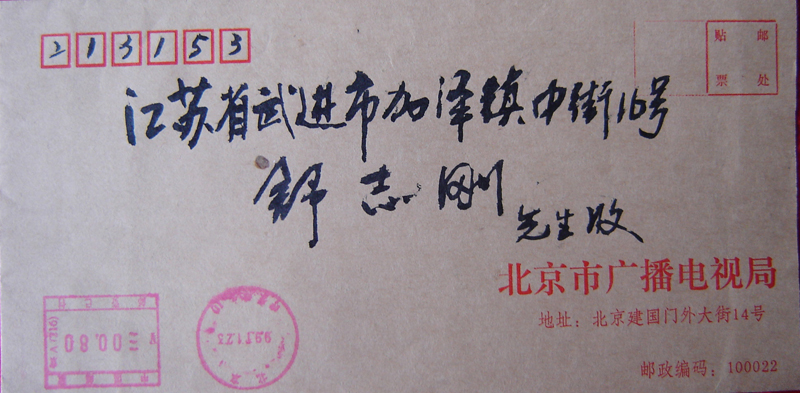 213153
贴 邮
票 处
江苏省武进市加泽镇中街16号
舒志刚
先生收
北京市广播电视局
地址：北京建国门外大街14号
邮政编码：100022
00.80